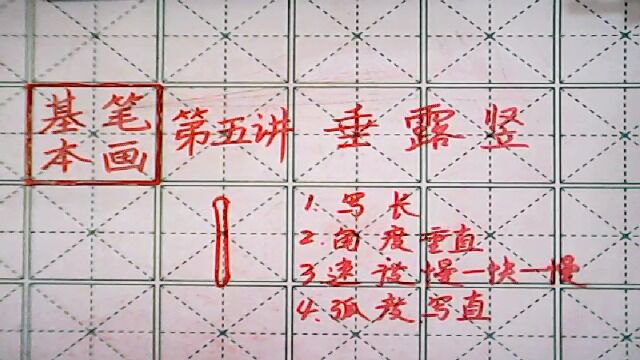 基笔
本画
第五讲 垂露竖
1. 写长
2. 角度垂直
3 速度慢一快一慢
4. 弧度写直